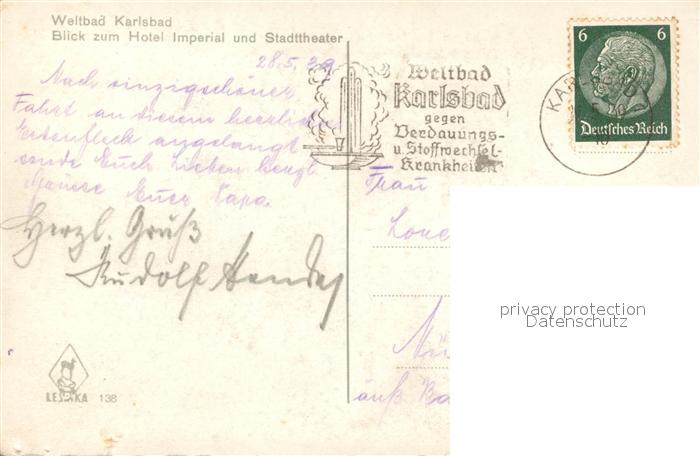 Weltbad Karlsbad
Blick zum Hotel Imperial und Stadttheater
28.5.39
Nach einzigschöner
Fahrt an diesem herrlichen
Erdenfleck angelangt
sende Euch Lieben herzl.
Grüsse Euer Papa.
Herzl. Gruß
Rudolf
LESKA 138
Weltbad
Karlsbad
gegen
Verdauungs-
u. Stoffwechsel-
Krankheiten
6 6
Deutsches Reich
KARLSBAD
Frau
privacy protection
Datenschutz